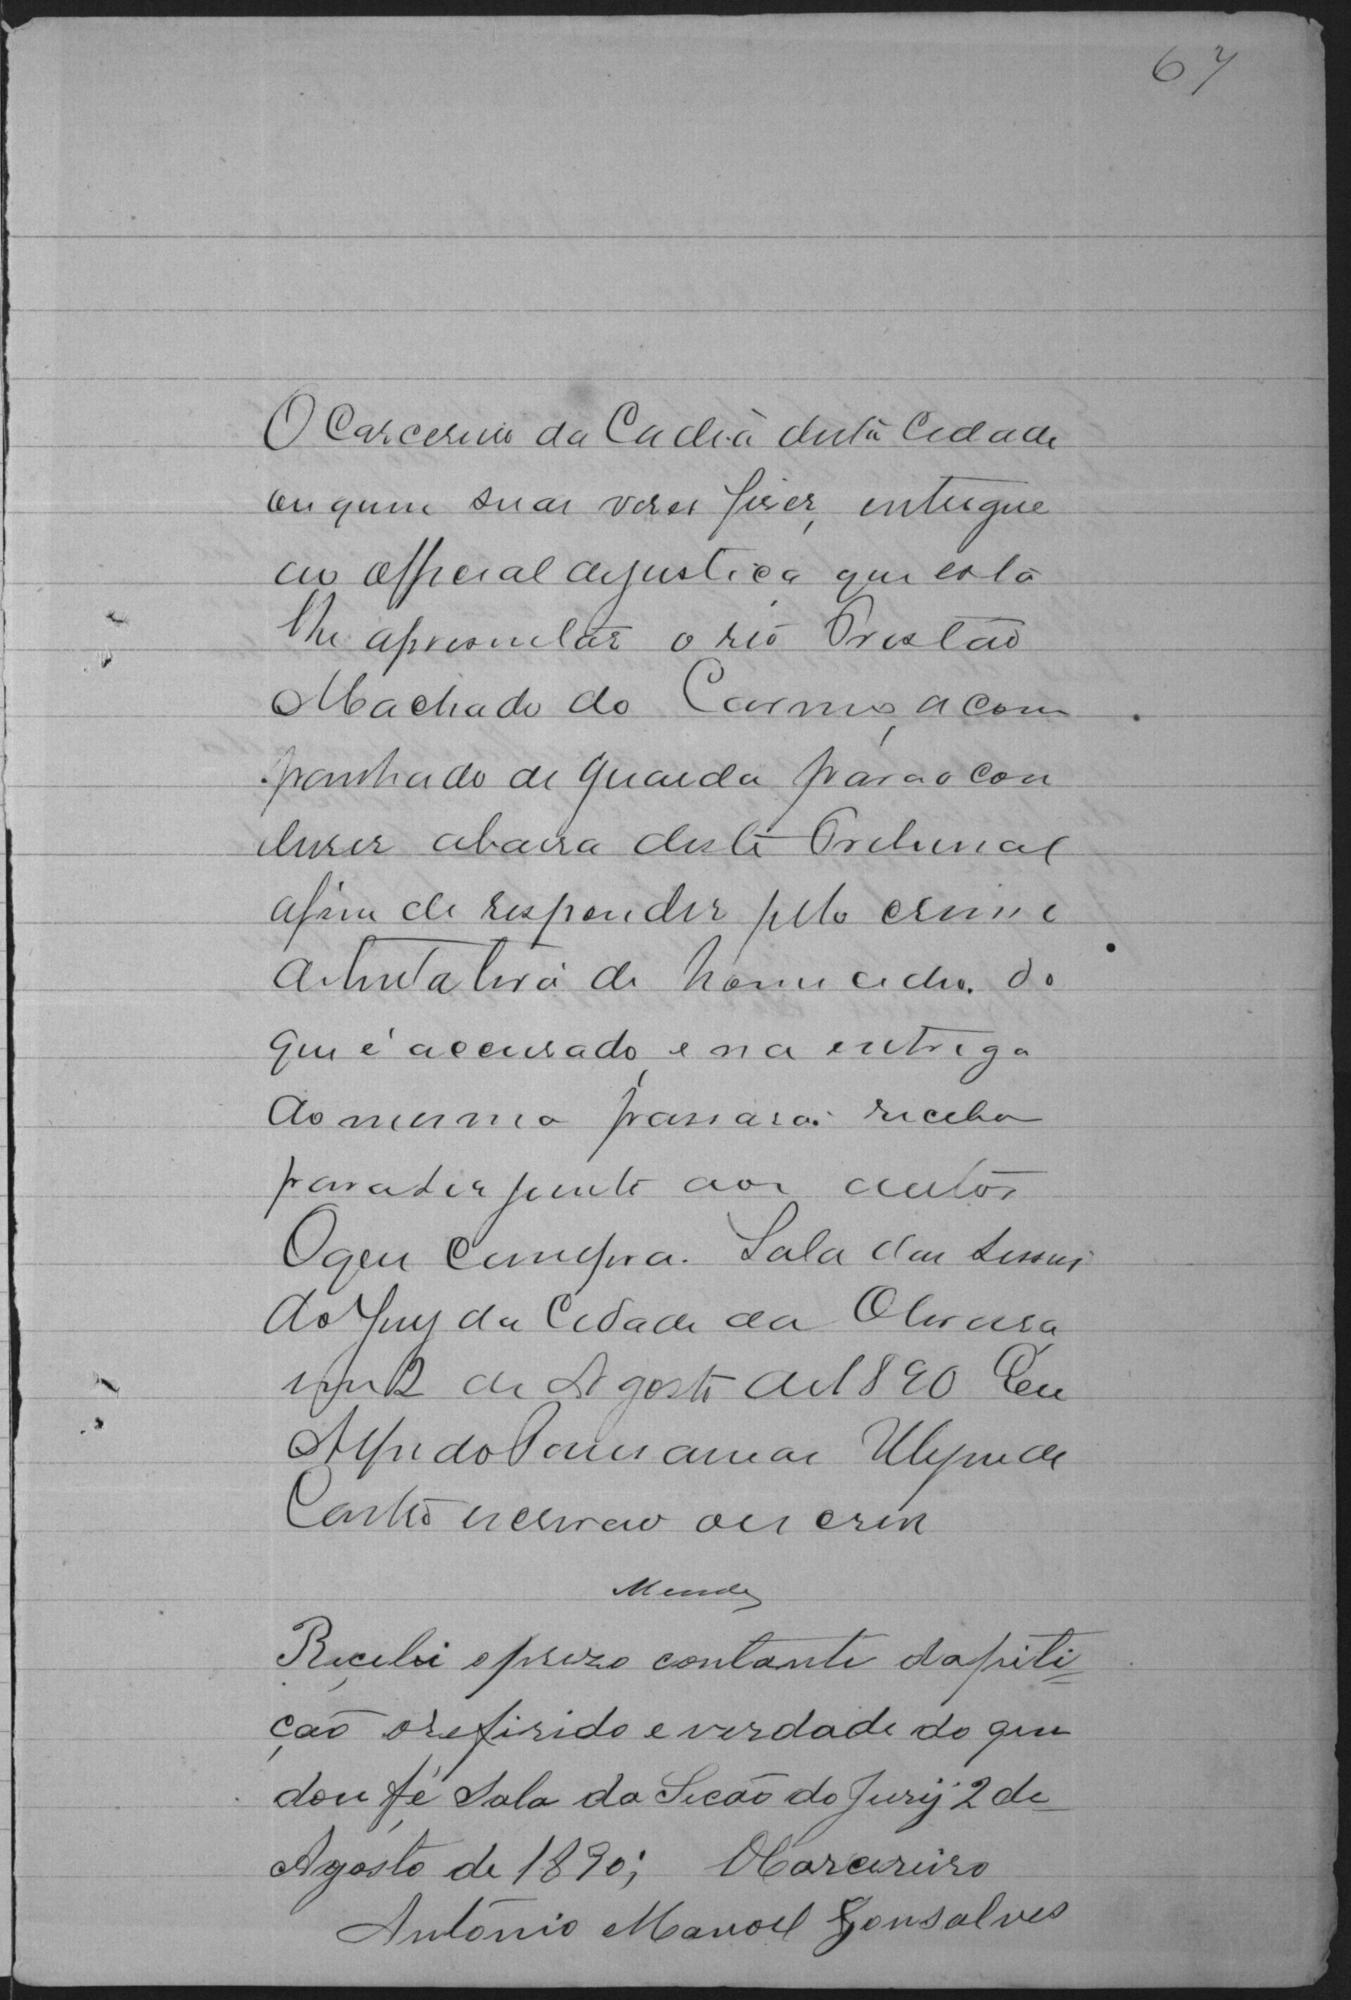 67
O Carcereiro da Cadeia desta Cidade
ou quem suas veses fiser, entregue
ao official de justiça que esta
lhe apresentar o reo Tristão
Machado do Carmo, acom
panhado de guarda para o con
duser abarra deste Tribunal
afim de responder pelo crime
de tentativa de homicidio do
que é accusado, e na entrega
do mesmo passará recebo
para ser junto aos autos
O que cumpra. Sala das sessões
do Jury da Cidade da Oliveira
em 2 de Agosto de 1890 Eu
Alfredo
Castro escrivão o escrevi
Mendes
Recebi o prezo contante da piti-
ção o refirido e verdade do que
dou fé Sala da Secão do Jury 2 de
Agosto de 1890; O Carcereiro
Antônio Manoel Gonsalves